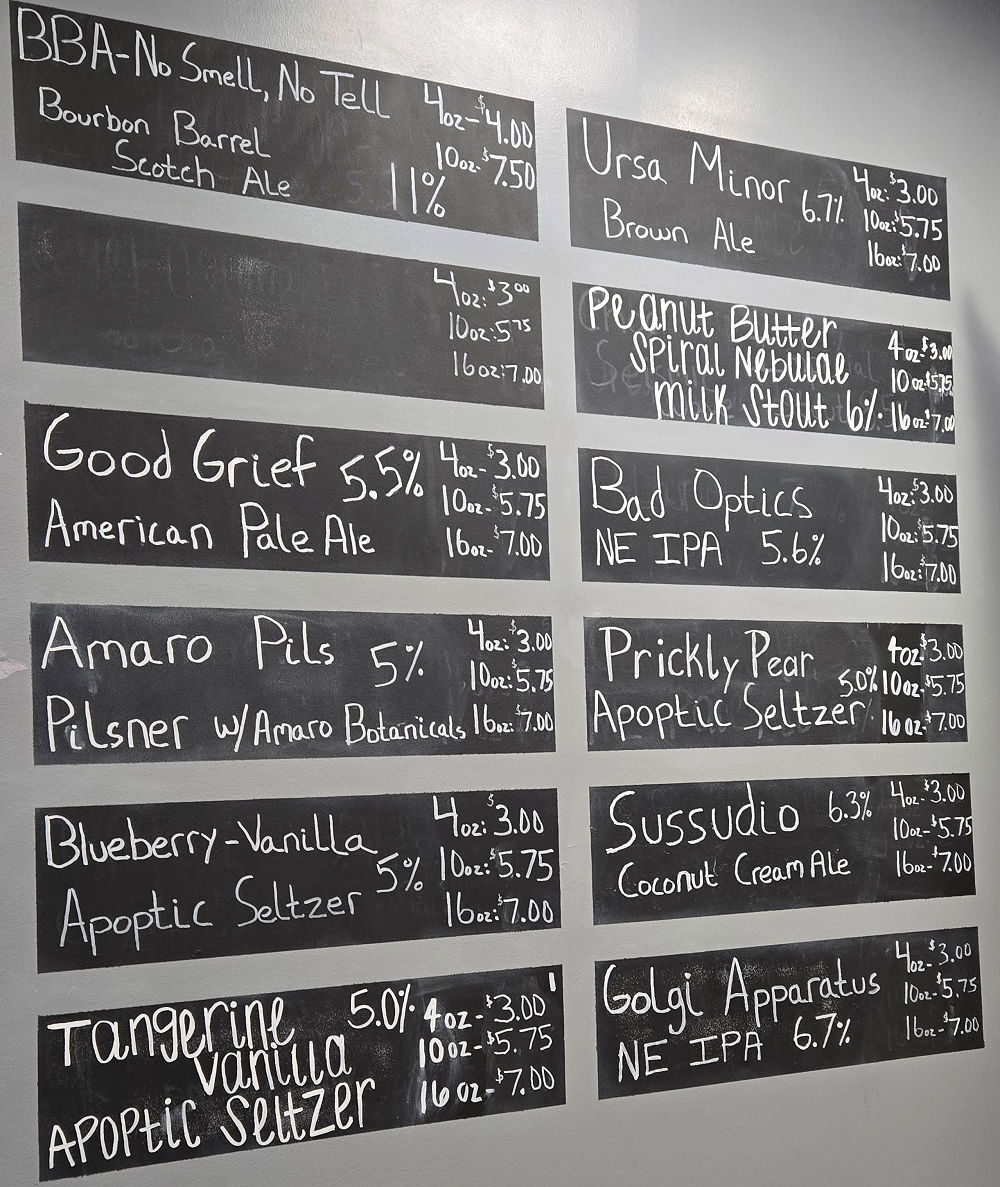 BBA-No Smell, No Tell
Bourbon Barrel
Scotch Ale 11%
4oz-$4.00
10oz-$7.50
4oz:$3.00
10oz:5.75
16oz:7.00
Good Grief 5.5%
American Pale Ale
4oz-$3.00
10oz-$5.75
16oz-$7.00
Amaro Pils 5%
Pilsner w/Amaro Botanicals
4oz:$3.00
10oz:$5.75
16oz:$7.00
Blueberry-Vanilla
Apoptic Seltzer 5%
4oz:$3.00
10oz:$5.75
16oz:$7.00
Tangerine 5.0%
Vanilla
Apoptic Seltzer
4oz-$3.00
10oz-$5.75
16oz-$7.00
Ursa Minor 6.7%
Brown Ale
4oz:$3.00
10oz:$5.75
16oz:$7.00
Peanut Butter
Spiral Nebulae
Milk Stout 6%
4oz-$3.00
10oz-$5.75
16oz-$7.00
Bad Optics
NE IPA 5.6%
4oz:$3.00
10oz:$5.75
16oz:$7.00
Prickly Pear
Apoptic Seltzer 5.0%
4oz-$3.00
10oz-$5.75
16oz-$7.00
Sussudio 6.3%
Coconut Cream Ale
4oz-$3.00
10oz-$5.75
16oz-$7.00
Golgi Apparatus
NE IPA 6.7%
4oz-$3.00
10oz-$5.75
16oz-$7.00